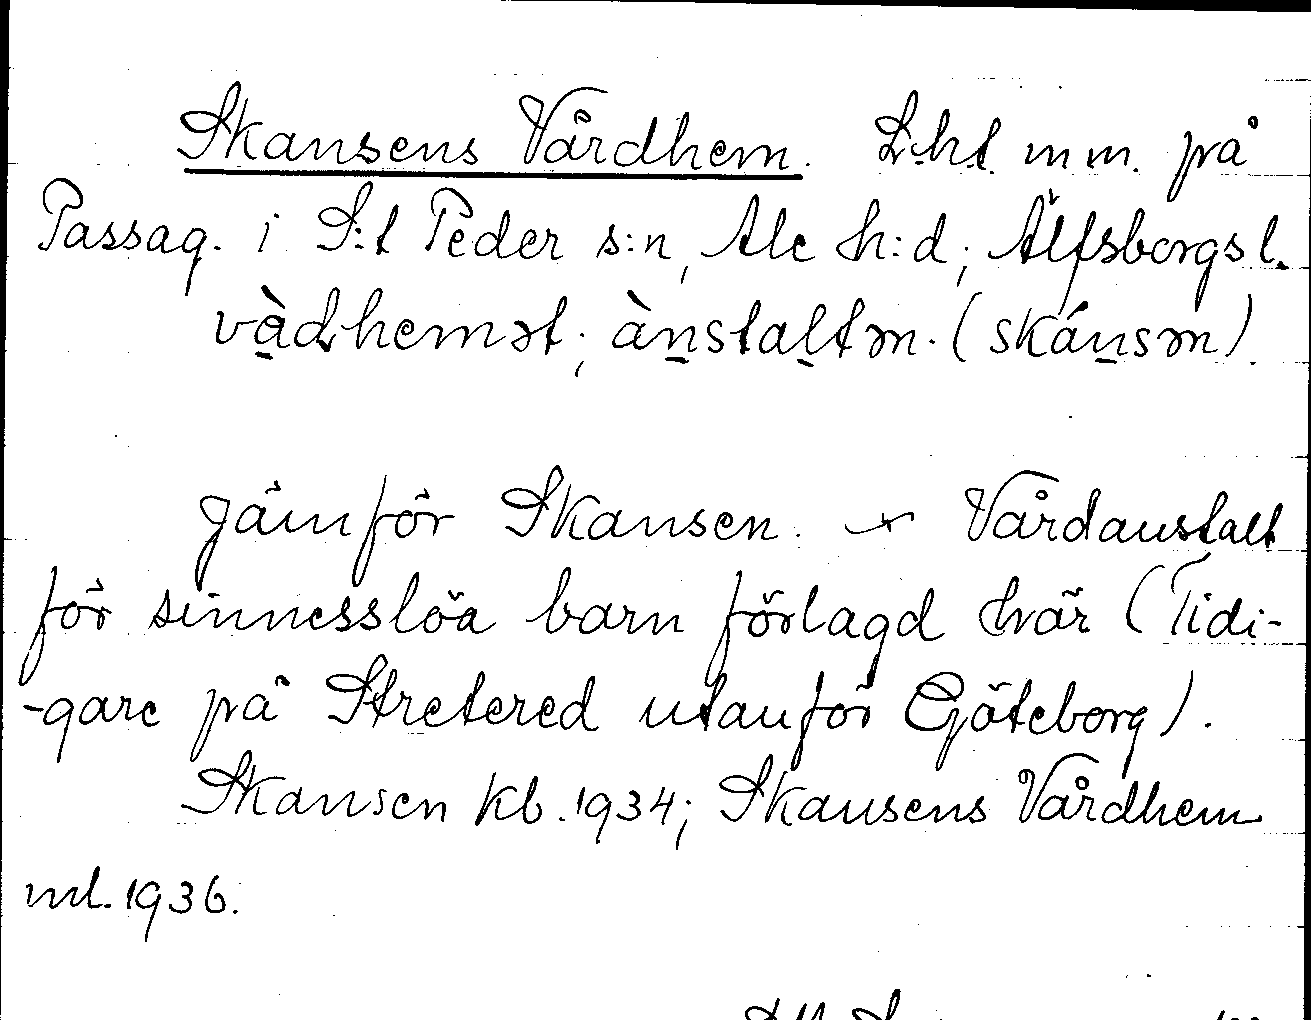 Skansens Vårdhem. L:ht. m m. på
Passag. i S:t Peder s:n, Ale h:d; Älfsborgs l.
vàdhemət; ànstaltən. (skánsən).
Jämför Skansen. Vårdanstalt
för sinnesslöa barn förlagd här (Tidi-
-gare på Stretered utanför Göteborg).
Skansen kb. 1934; Skansens Vårdhem
ml. 1936.